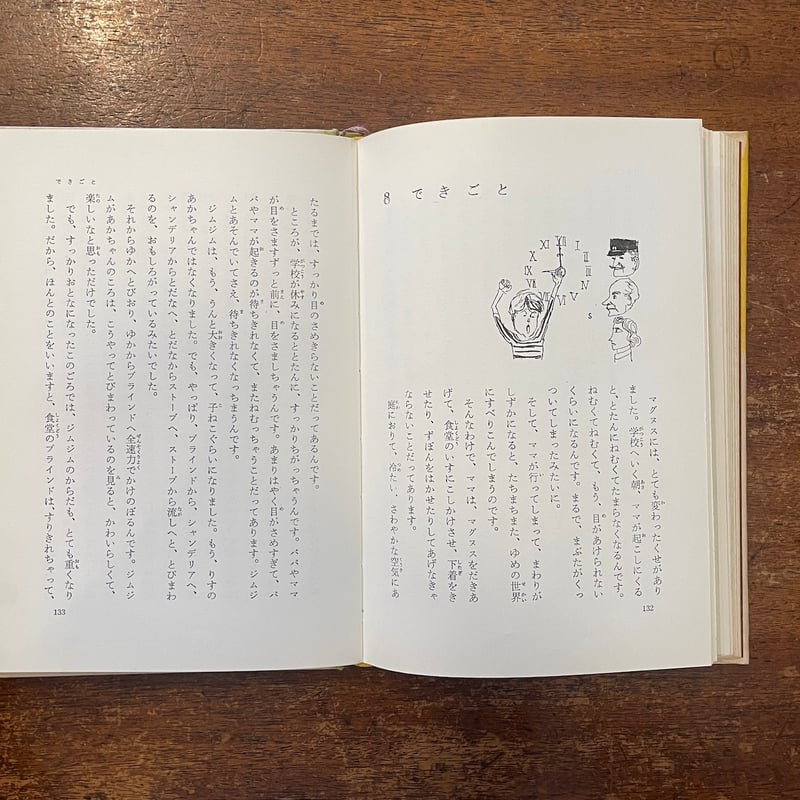 8 できごと
XII
I
II
III
IV
V
VI
VII
IX
X
XI
s
マグヌスには、とても変わったくせがあり
ました。学校へいく朝、ママが起こしにくる
と、とたんにねむくてたまらなくなるんです。
ねむくてねむくて、もう、目があけられない
くらいになるんです。まるで、まぶたがくっ
ついてしまったみたいに。
そして、ママが行ってしまって、まわりが
しずかになると、たちまちまた、ゆめの世界
にすべりこんでしまうのです。
そんなわけで、ママは、マグヌスをだきあ
げて、食堂のいすにこしかけさせ、下着をき
せたり、ずぼんをはかせたりしてあげなきゃ
ならないことだってあります。
庭におりて、冷たい、さわやかな空気にあ
132
できごと
たるまでは、すっかり目のさめきらないことだってあるんです。
ところが、学校が休みになるととたんに、すっかりちがっちゃうんです。パパやママ
が目をさますずっと前に、目をさましちゃうんです。あまりはやく目がさめすぎて、パ
パやママが起きるのが待ちきれなくて、またねむっちゃうことだってあります。ジムジ
ムとあそんでいてさえ、待ちきれなくなっちまうんです。
ジムジムは、もう、うんと大きくなって、子ねこぐらいになりました。もう、りすの
あかちゃんではなくなりました。でも、やっぱり、ブラインドから、シャンデリアへ、
シャンデリアからとだなへ、とだなからストーブへ、ストーブから流しへと、とびまわ
るのを、おもしろがっているみたいでした。
それからゆかへとびおり、ゆかからブラインドへ、全速力でかけのぼるんです。ジムジ
ムがあかちゃんのころは、こうやってとびまわっているのを見ると、かわいらしくて、
楽しいなと思っただけでした。
でも、すっかりおとなになったこのごろでは、ジムジムのからだも、とても重くなり
ました。だから、ほんとのことをいいますと、食堂のブラインドは、すりきれちゃって、
133